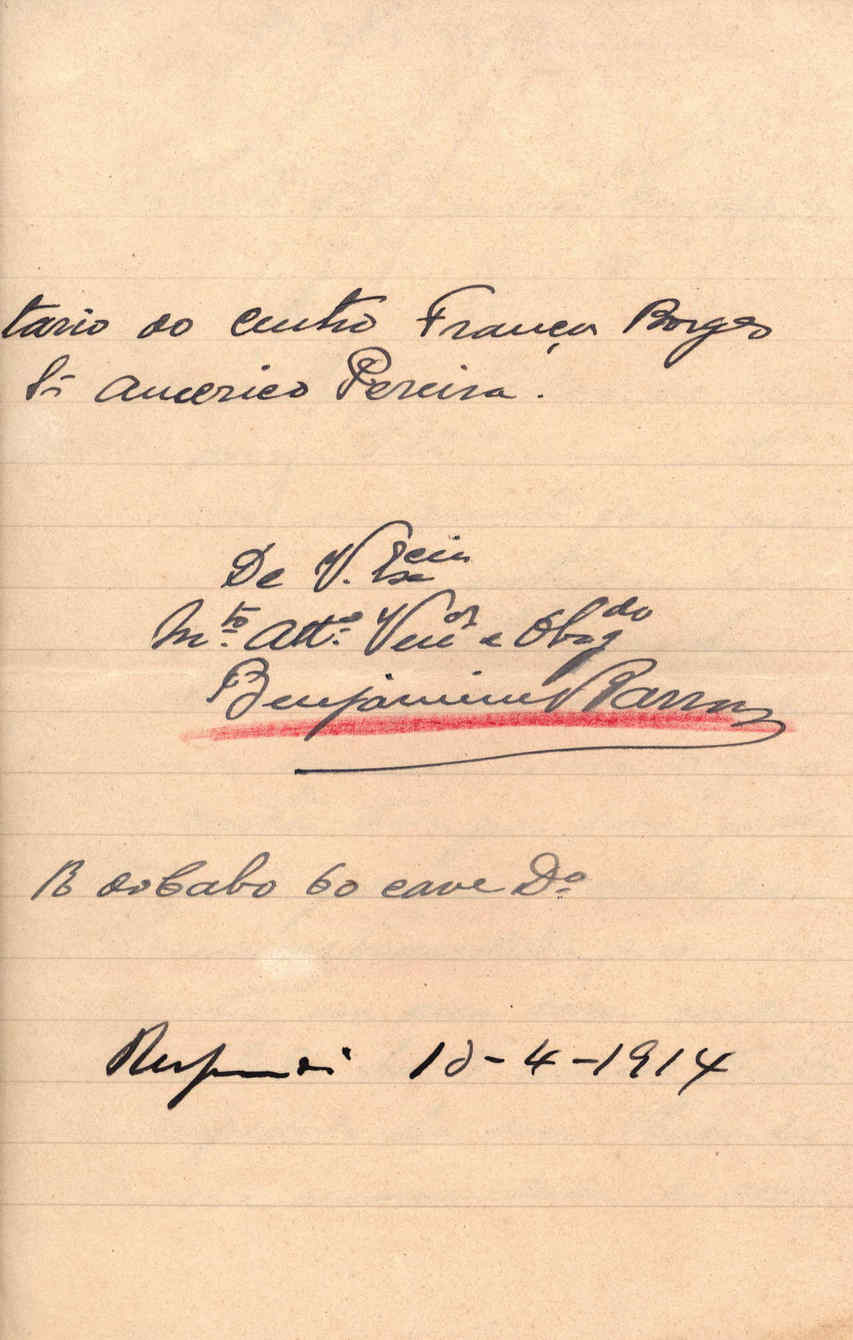 tario do Centro França Borges
Sr. Americo Pereira.
De V. Excia
Mto. Atto. Venor e Obgdo
Benjamim Parron
R do Cabo 60 cave Do
Respondi 10-4-1914